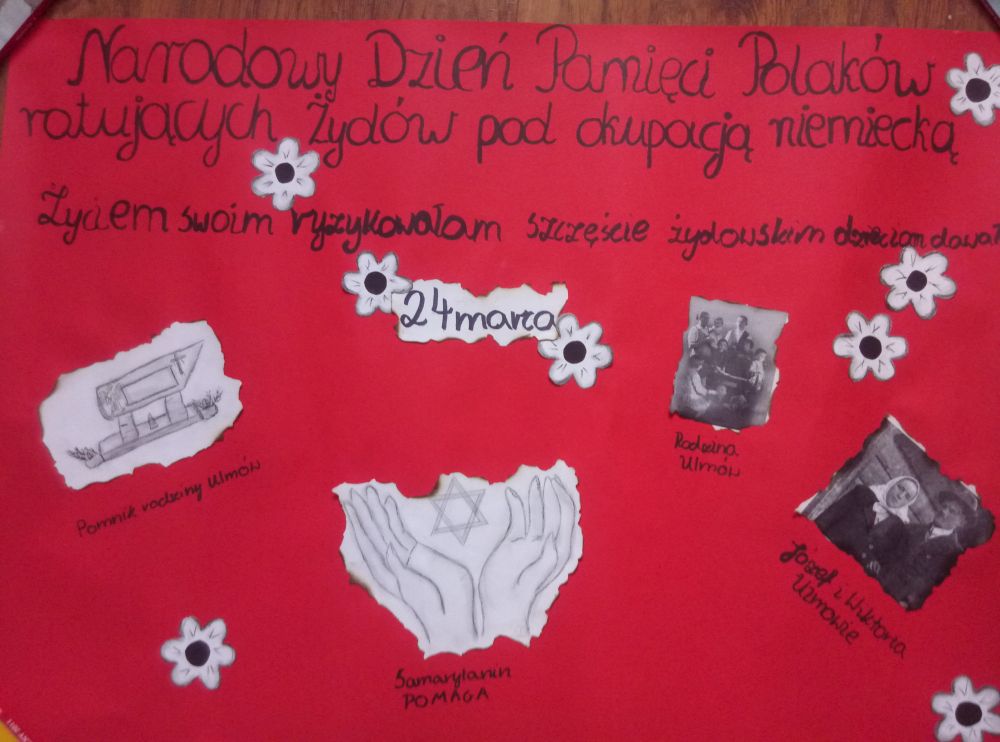 Narodowy Dzień Pamięci Polaków
ratujących Żydów pod okupacją niemiecką
Życiem swoim ryzykowałam szczęście żydowskim dzieciom dawał
24 marca
Rodzina
Ulmów
Pomnik rodziny Ulmów
Józef i Wiktoria
Ulmowie
Samarytanin
POMAGA